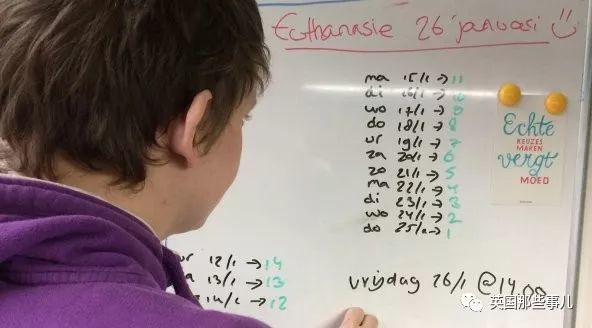 Euthanasie 26 januari
ma 15/1 → 11
di 16/1 → 10
wo 17/1 → 9
do 18/1 → 8
vr 19/1 → 7
za 20/1 → 6
zo 21/1 → 5
ma 22/1 → 4
di 23/1 → 3
wo 24/1 → 2
do 25/1 → 1
Echte
KEUZES
MAKEN
vergt
MOED
vr 12/1 → 14
a 13/1 → 13
14/1 → 12
vrijdag 26/1 @14.00
英国那些事儿